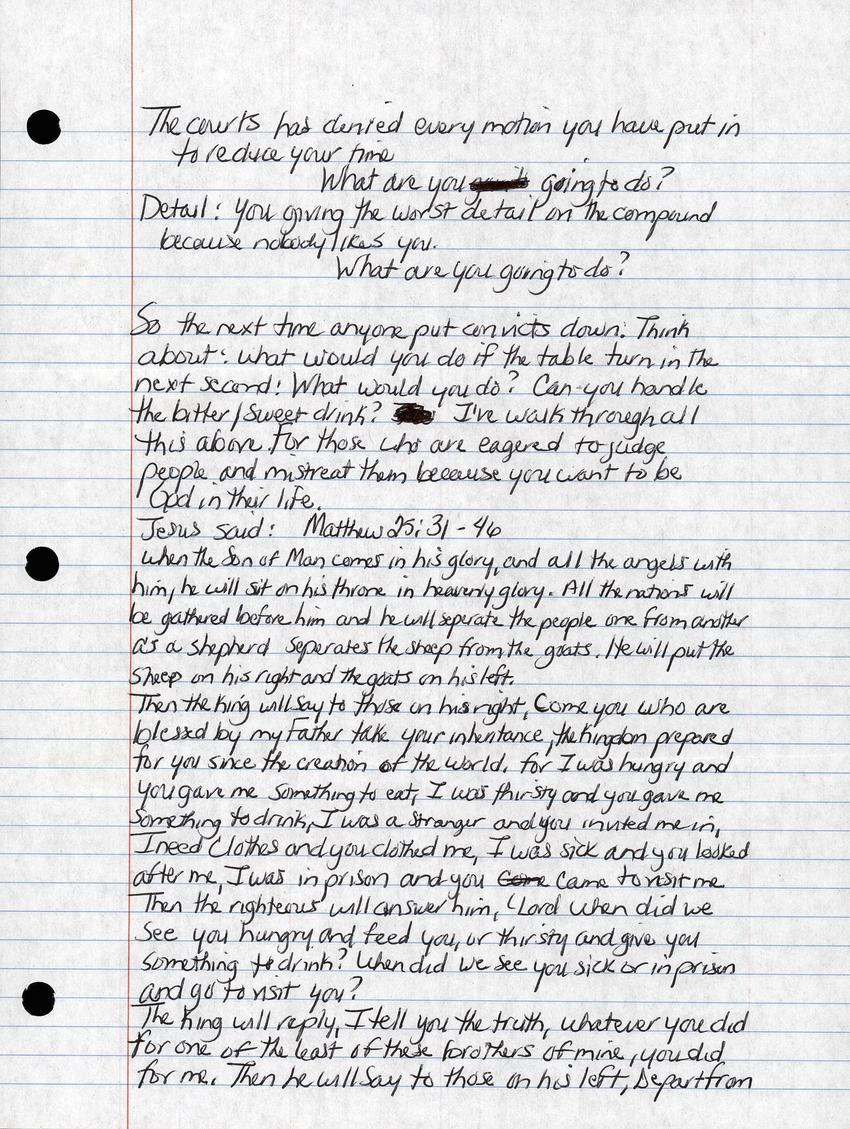 The courts has denied every motion you have put in
to reduce your time
What are you going to do?
Detail: You giving the worst detail on the compound
because nobody likes you.
What are you going to do?
So the next time anyone put convicts down: Think
about: what would you do if the table turn in the
next second! What would you do? Can you handle
the bitter/sweet drink? I've walk through all
this above. For those who are eagered to judge
people and mistreat them beecause you want to be
God in their life.
Jesus said: Matthew 25:31-46
When the Son of Man comes in his glory, and all the angels with
him, he will sit on his throne in heavenly glory. All the nations will
be gathered before him and he will seperate the people one from another
as a shepherd seperates the sheep from the goats. He will put the
sheep on his right and the goats on his left.
Then the King will say to those on his right, Come you who are
blessed by my Father take your inheritance, the Kingdom prepared
for you since the creation of the world. for I was hungry and
you gave me something to eat, I was thirsty and you gave me
something to drink, I was a stranger and you invited me in,
I need clothes and you clothed me, I was sick and you looked
after me, I was in prison and you came to visit me
Then the righteous will answer him, "Lord when did we
see you hungry and feed you, or thirsty and give you
something to drink? When did we see you sick or in prison
and go to visit you?
The King will reply, I tell you the truth, whatever you did
for one of the least of these brothers of mine, you did
for me. Then he will say to those on his left, Depart from